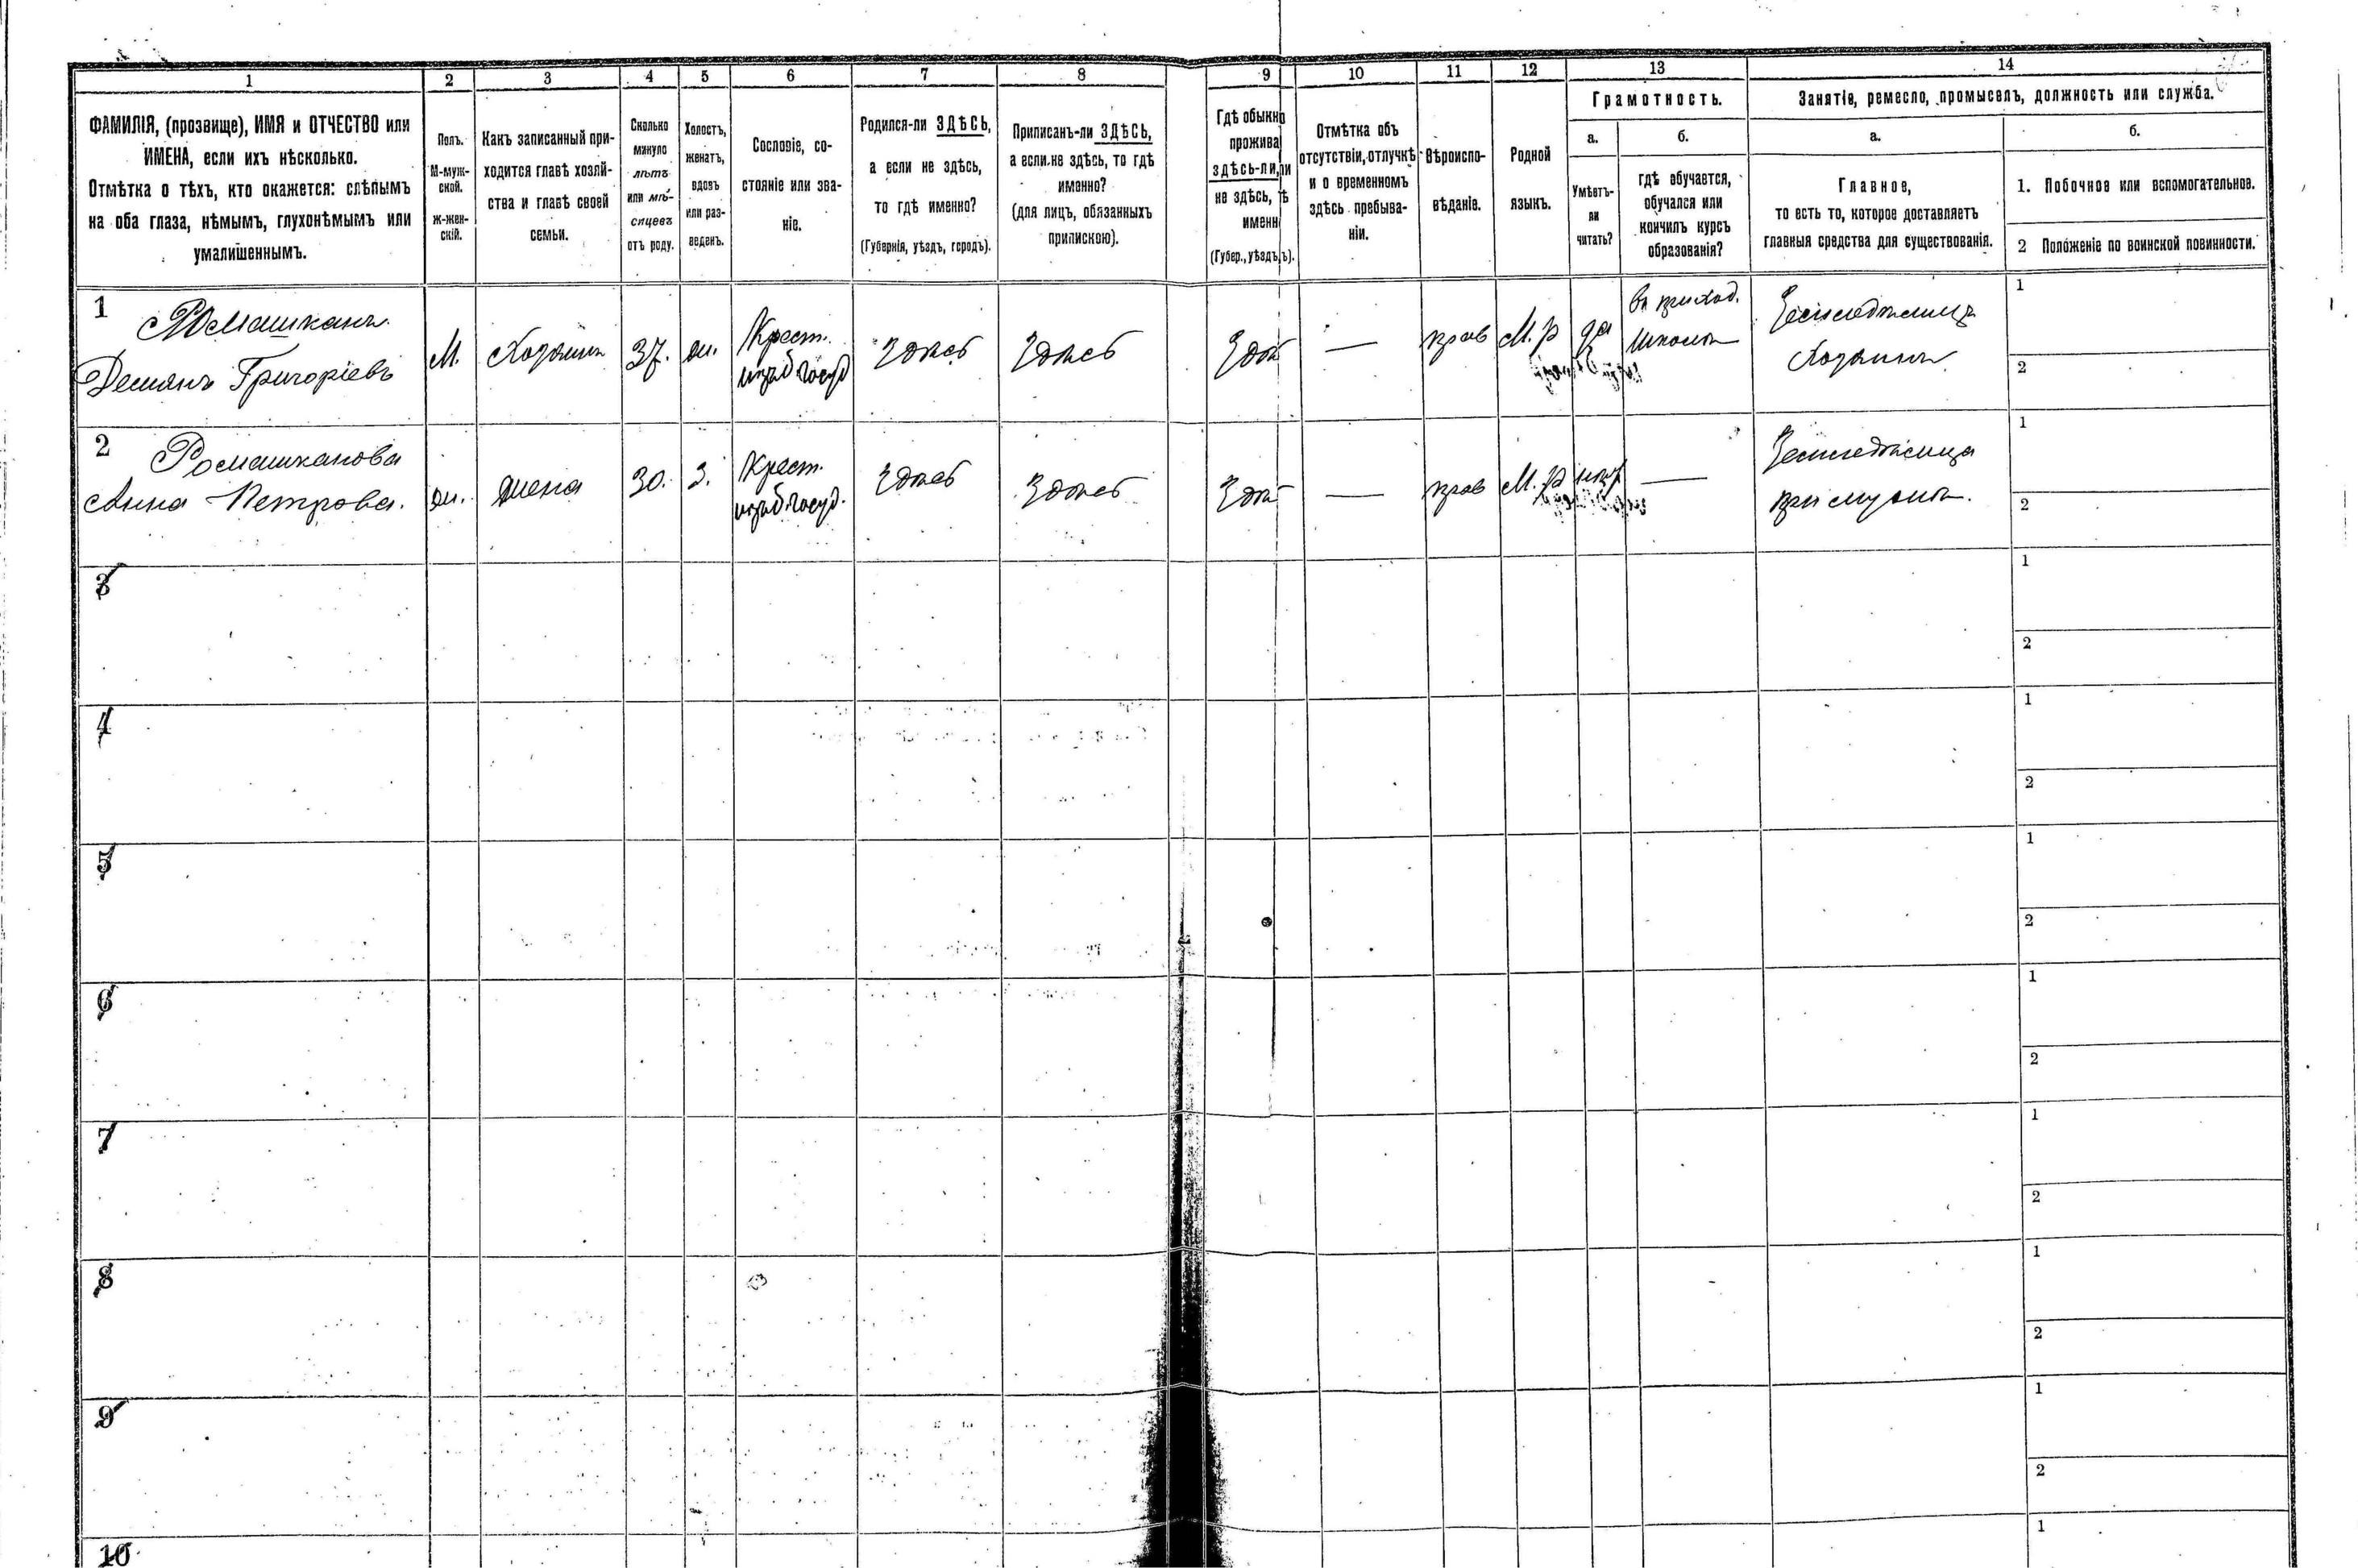 1 2 3 4 5 6 7 8 9 10 11 12 13 14
ФАМИЛІЯ, (прозвище), ИМЯ и ОТЧЕСТВО или
ИМЕНА, если ихъ нѣсколько.
Отмѣтка о тѣхъ, кто окажется: слѣпымъ
на оба глаза, нѣмымъ, глухонѣмымъ или
умалишеннымъ.
Полъ.
М-муж-
ской.
ж-жен-
скій.
Какъ записанный при-
ходится главѣ хозяй-
ства и главѣ своей
семьи.
Сколько
минуло
лѣтъ
или мѣ-
сяцевъ
отъ роду.
Холостъ,
женатъ,
вдовъ
или раз-
веденъ.
Сословіе, со-
стояніе или зва-
ніе.
Родился-ли ЗДѢСЬ,
а если не здѣсь,
то гдѣ именно?
(Губернія, уѣздъ, городъ).
Приписанъ-ли ЗДѢСЬ,
а если не здѣсь, то гдѣ
именно?
(для лицъ, обязанныхъ
припискою).
Гдѣ обыкно
прожива
ЗДѢСЬ-ЛИ, ли
не здѣсь, ѣ
именн
(Губер., уѣздъ, ъ).
Отмѣтка объ
отсутствіи, отлучкѣ
и о временномъ
здѣсь пребыва-
ніи.
Вѣроиспо-
вѣданіе.
Родной
языкъ.
Грамотность.
а.
Умѣетъ-
ли
читать?
б.
гдѣ обучается,
обучался или
кончилъ курсъ
образованія?
Занятіе, ремесло, промыселъ, должность или служба.
а.
Главное,
то есть то, которое доставляетъ
главныя средства для существованія.
б.
1. Побочное или вспомогательное.
2 Положеніе по воинской повинности.
1 Ромашканъ
Демянъ Григоріевъ
М.
Хозяинъ
37.
ж.
Крест.
изъ б. госуд
здѣсь
здѣсь
Здѣ
—
прав
М. р
да
въ приход.
школѣ
Земледѣлецъ
Хозяинъ
1
2
2 Ромашканова
Анна Петрова.
ж.
жена
30.
З.
Крест.
изъ б. госуд.
здѣсь
здѣсь
Здѣ
—
прав
М. р
нѣт
—
Земледѣлица
при мужѣ.
1
2
3
1
2
4
1
2
5
1
2
6
1
2
7
1
2
8
1
2
9
1
2
10
1